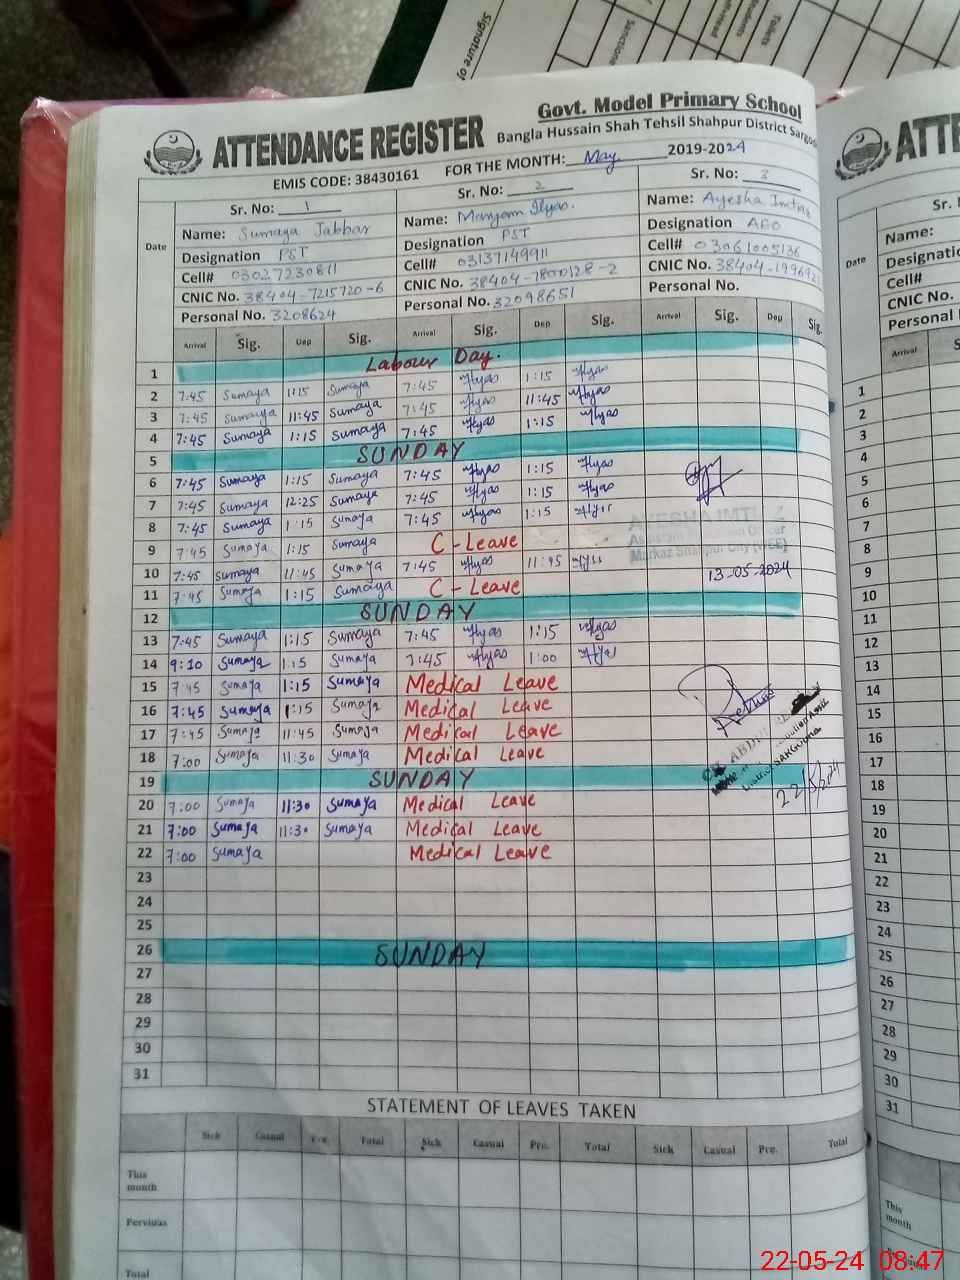 Signature of
Sanctioned
Students
Toilets
Govt. Model Primary School
ATTENDANCE REGISTER
Bangla Hussain Shah Tehsil Shahpur District
EMIS CODE: 38430161 FOR THE MONTH: May 2019-2024
Sr. No: 1 Sr. No: 2 Sr. No: 3
Date
Name: Sumaya Jabbar Name: Maryam Ilyas. Name: Ayesha Imtiaz
Designation PST Designation PST Designation AEO
Cell# 03027230811 Cell# 03137149911 Cell# 03061005136
CNIC No. 38404-7215720-6 CNIC No. 38404-7800128-2 CNIC No. 38404-199692
Personal No. 3208624 Personal No. 32098651 Personal No.
Arrival Sig. Dep Sig. Arrival Sig. Dep Sig. Arrival Sig. Dep Sig.
1 Labour Day.
2 7:45 Sumaya 1:15 Sumaya 7:45 Ilyas 1:15 Ilyas
3 7:45 Sumaya 11:45 Sumaya 7:45 Ilyas 11:45 Ilyas
4 7:45 Sumaya 1:15 Sumaya 7:45 Ilyas 1:15 Ilyas
5 SUNDAY
6 7:45 Sumaya 1:15 Sumaya 7:45 Ilyas 1:15 Ilyas
7 7:45 Sumaya 12:25 Sumaya 7:45 Ilyas 1:15 Ilyas
8 7:45 Sumaya 1:15 Sumaya 7:45 Ilyas 1:15 Ilyas
AYESHA IMTIAZ
9 7:45 Sumaya 1:15 Sumaya C-Leave
Markaz Shahpur City
10 7:45 Sumaya 11:45 Sumaya 7:45 Ilyas 11:45 Ilyas 13-05-2024
11 7:45 Sumaya 1:15 Sumaya C-Leave
12 SUNDAY
13 7:45 Sumaya 1:15 Sumaya 7:45 Ilyas 1:15 Ilyas
14 9:10 Sumaya 1:15 Sumaya 7:45 Ilyas 1:00 Ilyas
15 7:45 Sumaya 1:15 Sumaya Medical Leave
16 7:45 Sumaya 1:15 Sumaya Medical Leave
17 7:45 Sumaya 11:45 Sumaya Medical Leave
18 7:00 Sumaya 11:30 Sumaya Medical Leave
19 SUNDAY
22/5/2024
20 7:00 Sumaya 11:30 Sumaya Medical Leave
21 7:00 Sumaya 11:30 Sumaya Medical Leave
22 7:00 Sumaya Medical Leave
23
24
25
26 SUNDAY
27
28
29
30
31
STATEMENT OF LEAVES TAKEN
Sick Casual Total Sick Casual Pre. Total Sick Casual Pre. Total
This month
Pervious
Total
Sr.
Name:
Date
Cell#
CNIC No.
Personal
Arrival
1
2
3
4
5
6
7
8
9
10
11
12
13
14
15
16
17
18
19
20
21
22
23
24
25
26
27
28
29
30
31
This month
22-05-24 08:47